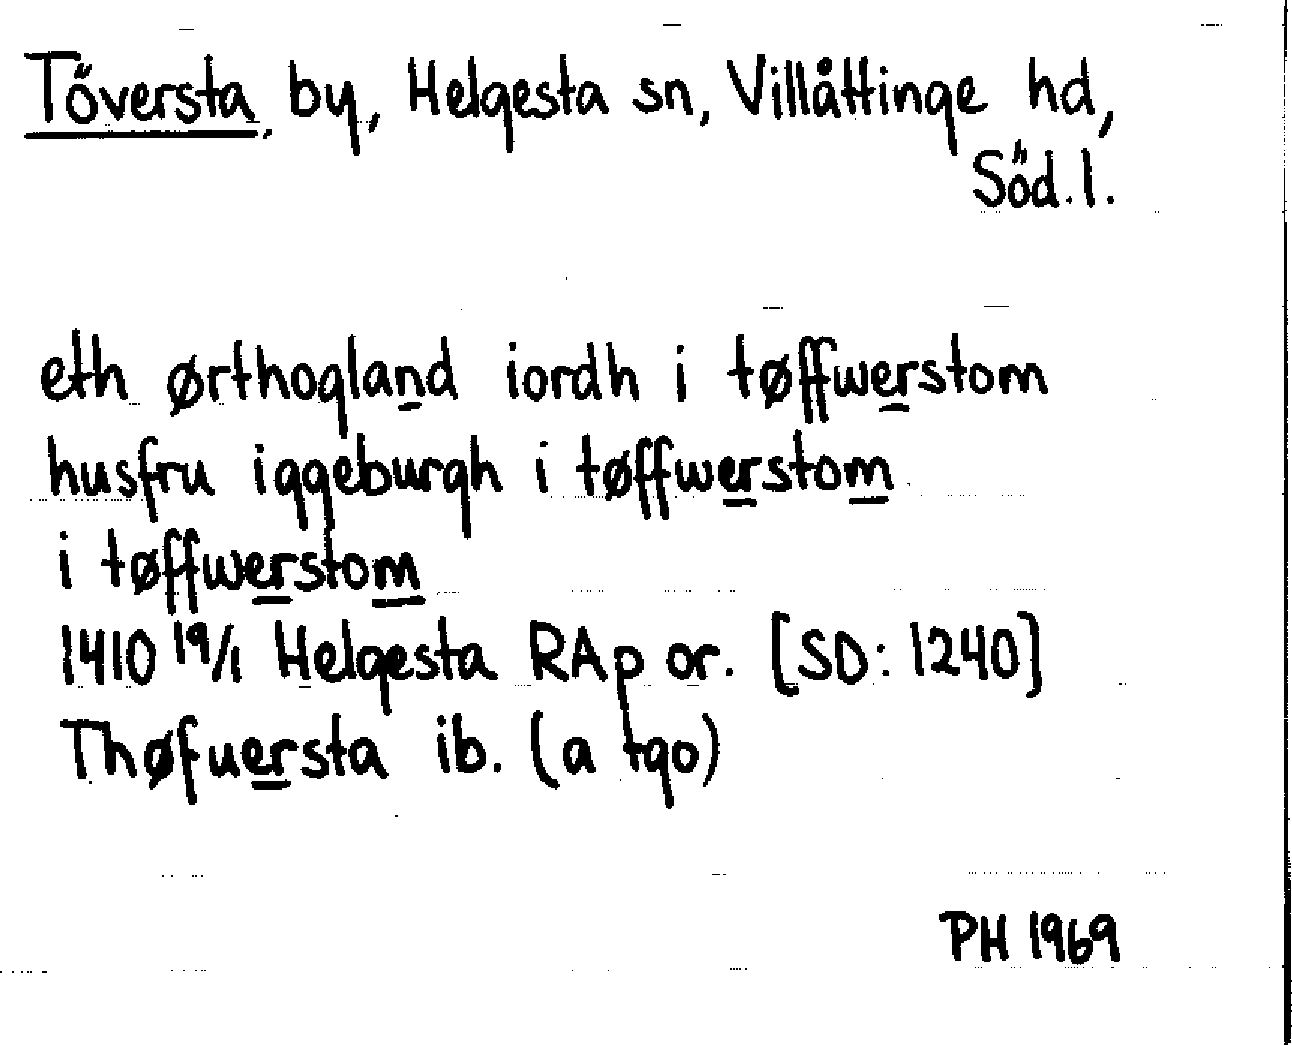 Töversta, by, Helgesta sn, Villåttinge hd,
Söd. l.
eth ørthogland iordh i tøffwerstom
husfru iggeburgh i tøffwerstom
i tøffwerstom
1410 19/1 Helgesta RAp or. [SD: 1240]
Thøfuersta ib. (a tgo)
PH 1969